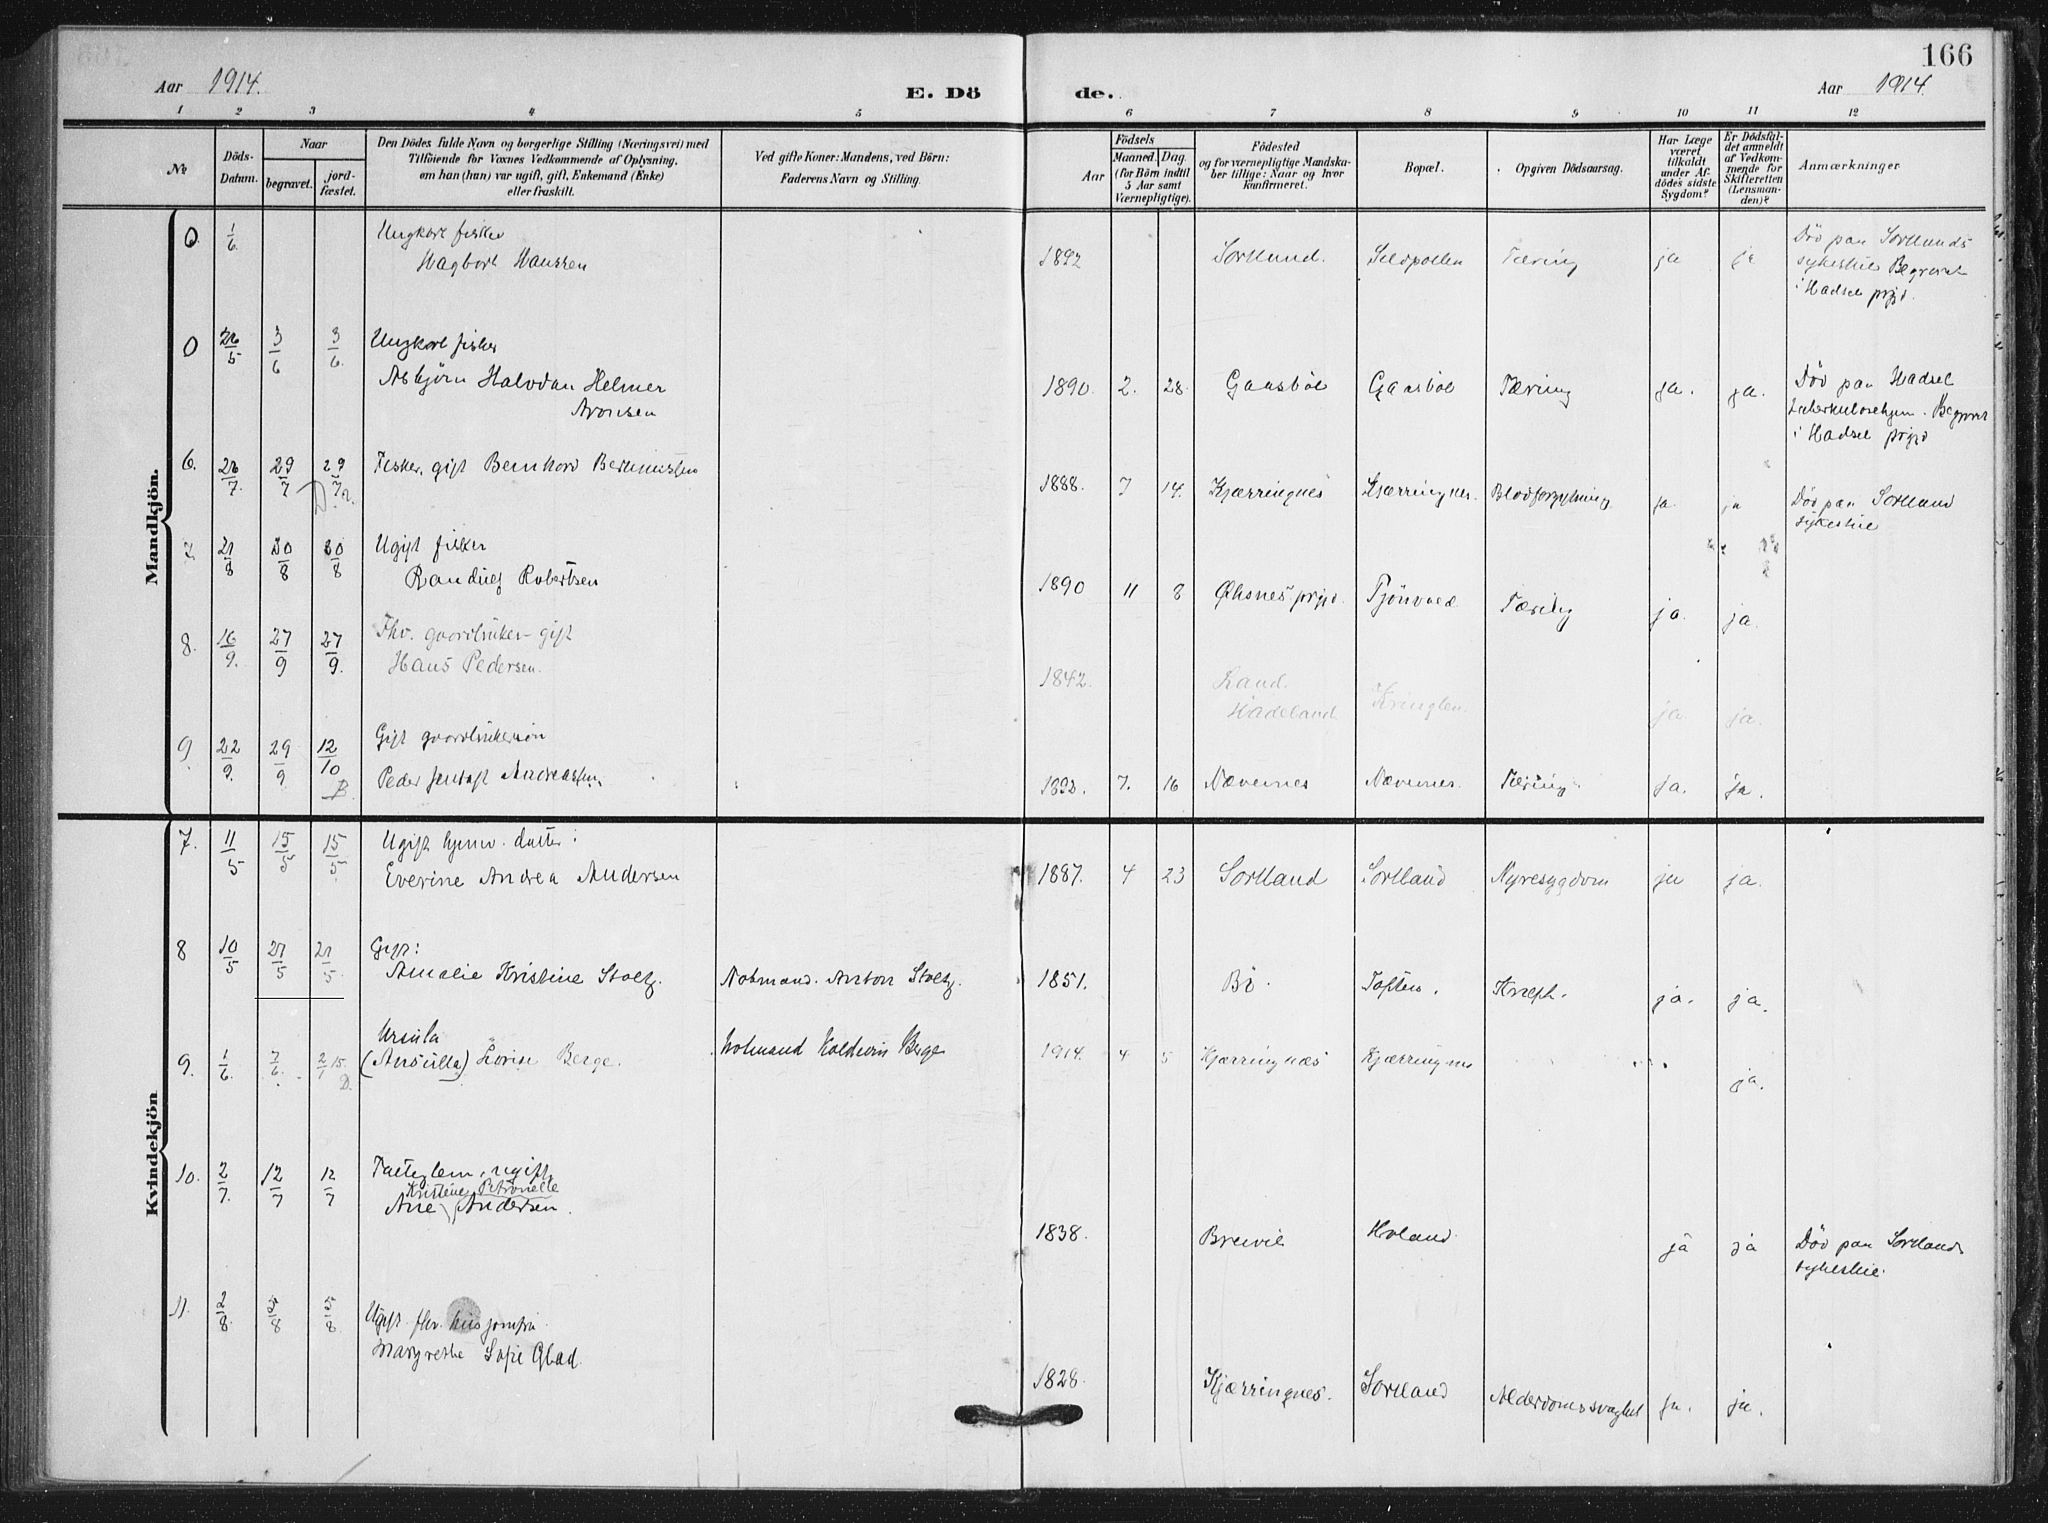 166
Aar 1914.
E. Dö
de.
Aar 1914
1 2 3 4 5 6 7 8 9 10 11 12
№
Döds-
Datum.
Naar
begravet.
jord-
fæstet.
Den Dödes fulde Navn og borgerlige Stilling (Næringsvei) med
Tilföiende for Voxnes Vedkommende af Oplysning,
om han (hun) var ugift, gift, Enkemand (Enke)
eller fraskilt.
Ved gifte Koner: Mandens, ved Börn:
Faderens Navn og Stilling.
Aar
Födsels
Maaned. Dag.
(for Börn indtil
5 Aar samt
Værnepligtige).
Födested
og for værnepligtige Mandska-
ber tillige: Naar og hvor
konfirmeret.
Bopæl.
Opgiven Dödsaarsag.
Har Læge
været
tilkaldt
under Af-
dödes sidste
Sygdom?
Er Dödsfal-
det anmeldt
af Vedkom-
mende for
Skifteretten
(Lensman-
den)?
Anmærkninger
Mandkjön.
0. 1/6. Ungkarl fisker
Hagbart Hanssen
1892 Sortland. Sildpollen Tæring ja ja
Död paa Sortlands
sykehus Begravet
i Hadsel prgjd.
0 26/5 3/6 3/6. Ungkarl fisker
Asbjörn Halvdan Helmer
Aronsen
1890. 2. 28. Gaasböl Gaasböl Tæring ja. ja.
Död paa Hadsel
tuberkulosehjem. Begravet
i Hadsel prgjd
6. 26/7. 29/7 29/7 Fisker, gift Bernhard Bertinussen
1888. 7 14. Kjærringnes Kjærringnes. Blodforgiftning ja. ja
Död paa Sortland
sykehus
7 21/8 30/8 30/8 Ugift fisker
Randulf Robertsen
1890 11 8 Øksnes prgjd. Tjönvold Tæring ja. ja.
8. 16/9. 27/9 27/9. Fhv. gaardbruker gift
Hans Pedersen.
1842. Land.
Hadeland Kringlen. ja. ja.
9 22/9. 29/9 12/10 B. Gift gaardbrukersön
Peder Andreassen
7. 16 Nævernes Nævernes. Tæring ja. ja.
Kvindekjön
7. 11/5 15/5 15/5. Ugift hjemv. datter:
Everine Andrea Andersen
1887. 4 23 Sortland Sortland Nyresygdom ja ja.
8 10/5 27/5 27/5. Gift:
Amalie Kristine Stoltz. Notmand. Anton Stoltz.
1851. Bö. Toften. Kræft. ja. ja.
9. 1/6. 7/6. Ursula
(Ansulla) Lovise Berge. Notmand Koldevin Berge
1914. 4 5 Kjærringnæs Kjærringnes ja.
10. 2/7. 12/7 12/7 Fattiglem, ugift,
Kristine Petronelle
Ane Andersen.
1838. Breivik Holand. ja ja
Död paa Sortlands
sykehus.
11. 2/8. 15/8 15/8 Ugift fhv. husjomfru
Margrethe Sofie Qbad.
1828. Kjærringnes. Sortland Alderdomssvaghet ja. ja.